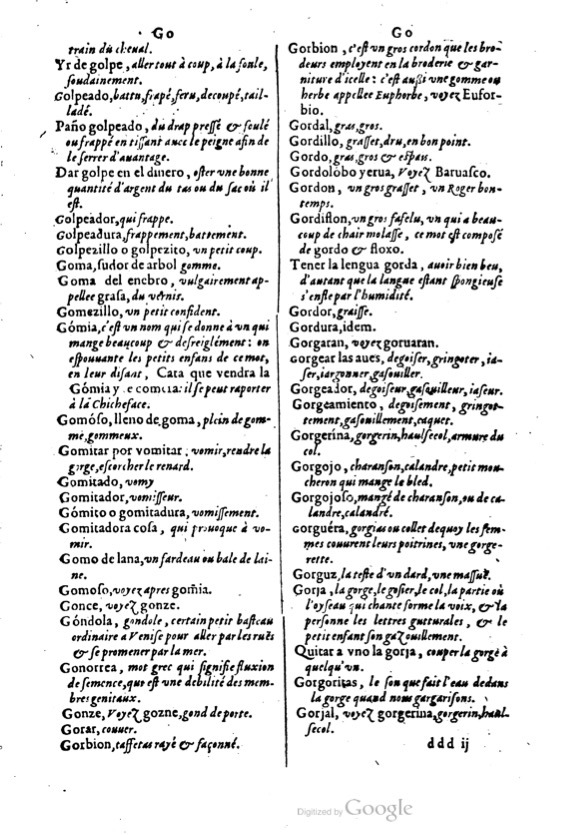 Go
train du cheual.
Yr de golpe, aller tout à coup, à la foule,
soudainement.
Golpeado, battu, frapé, feru, decoupé, tail-
ladé.
Paño golpeado, du drap pressé & foulé
ou frappé en tissant auec le peigne afin de
le serrer d'auantage.
Dar golpe en el dinero, oster une bonne
quantité d'argent du tas ou du sac où il
est.
Golpeador, qui frappe.
Golpeadura, frappement, battement.
Golpezillo o golpezito, vn petit coup.
Goma, sudor de arbol gomme.
Goma del enebro, vulgairement ap-
pellee grasa, du vernis.
Gomezillo, vn petit confident.
Gómia, c'est vn nom qui se donne à vn qui
mange beaucoup & desreiglément: on
espouuante les petits enfans de ce mot,
en leur disant, Cata que vendra la
Gómia y te comera: il se peut raporter
à la Chicheface.
Gomóso, lleno de goma, plein de gom-
me, gommeux.
Gomitar por vomitar, vomir, rendre la
gorge, escorcher le renard.
Gomitado, vomy
Gomitador, vomisseur.
Gómito o gomitadura, vomissement.
Gomitadora cosa, qui prouoque à vo-
mir.
Gomo de lana, vn fardeau ou bale de lai-
ne.
Gomoso, voyez apres gomia.
Gonce, voyez gonze.
Góndola, gondole, certain petit basteau
ordinaire a Venise pour aller par les ruës
& se promener par la mer.
Gonorrea, mot grec qui signifie fluxion
de semence, que est vne debilité des mem-
bres genitaux.
Gonze, Voyez gozne, gond de porte.
Gorar, couuer.
Gorbion, taffetas rayé & façonné.
Go
Gorbion, c'est vn gros cordon que les bro-
deurs employent en la broderie & gar-
niture d'icelle: c'est aussi vne gomme ou
herbe appellee Euphorbe, voyez Eufor-
bio.
Gordal, gras, gros.
Gordillo, grasset, dru, en bon point.
Gordo, gras, gros & espais.
Gordolobo yerua, Voyez Baruasco.
Gordon, vn gros grasset, vn Roger bon-
temps.
Gordiflon, vn gros fafelu, vn qui a beau-
coup de chair molasse, ce mot est composé
de gordo & floxo.
Tener la lengua gorda, auoir bien beu,
d'autant que la langue estant spongieuse
s'enfle par l'humidité.
Gordor, graisse.
Gordura, idem.
Gorgaran, voyez goruaran.
Gorgear las aues, degoiser, gringoter, ia-
ser, iargonner, gasouiller.
Gorgeador, degoiseur, gasouilleur, iaseur.
Gorgeamiento, degoisement, gringot-
tement, gasouillement, caquet.
Gorgerina, gorgerin, haulsecol, armure du
col.
Gorgojo, charanson, calandre, petit mou-
cheron qui mange le bled.
Gorgojoso, mangé de charanson, ou de ca-
landre, calandré.
Gorguéra, gorgias ou collet dequoy les fem-
mes couurent leurs poitrines, vne gorge-
rette.
Gorguz, la teste d'vn dard, vne massuë.
Gorja, la gorge, le gosier, le col, la partie où
l'oyseau qui chante forme la voix, & la
personne les lettres gutturales, & le
petit enfant son gazouillement.
Quitar a vno la gorja, couper la gorge à
quelqu'vn.
Gorgoritas, le son que fait l'eau dedans
la gorge quand nous gargarisons.
Gorjal, voyez gorgerina, gorgerin, haul-
secol.
ddd ij
Digitized by Google